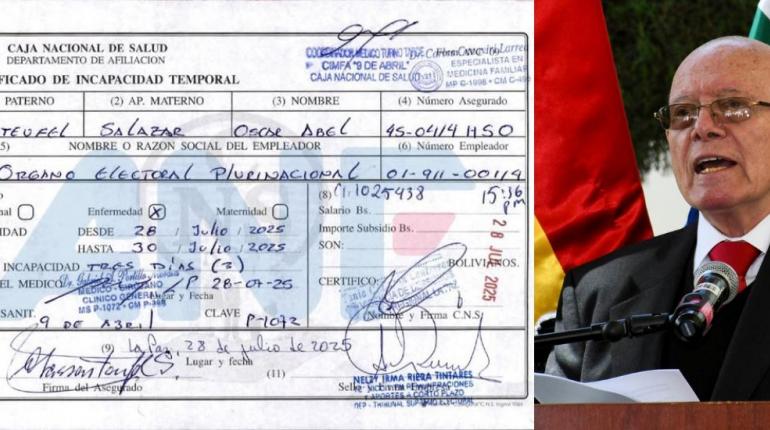 CAJA NACIONAL DE SALUD
DEPARTAMENTO DE AFILIACION
Form. AVC-09
FICADO DE INCAPACIDAD TEMPORAL
COORDINADOR MEDICO TURNO TARDE
CIMFA "9 DE ABRIL"
CAJA NACIONAL DE SALUD
ESPECIALISTA EN
MEDICINA FAMILIAR
PATERNO (2) AP. MATERNO (3) NOMBRE (4) Número Asegurado
TEUFEL SALAZAR OSCAR ABEL 45-0414 HSO
5) NOMBRE O RAZON SOCIAL DEL EMPLEADOR (6) Número Empleador
ORGANO ELECTORAL PLURINACIONAL 01-911-00114
(8) 1025438 15:36 PM
Enfermedad X Maternidad Salario Bs.
IDAD DESDE 28 / Julio / 2025 Importe Subsidio Bs.
HASTA 30 / Julio / 2025 SON:
INCAPACIDAD TRES DÍAS (3) BOLIVIANOS.
28 JUL 2025
EL MEDICO P 28-07-25 CERTIFICO:
MEDICO - CIRUJANO
CLINICO GENERAL
MS P-1072
Lugar y Fecha
SANIT. 9 DE Abril CLAVE P-1072 Nombre y Firma C.N.S.
(9) La Paz, 28 de julio de 2025
Lugar y fecha
Firma del Asegurado (11)
NELZY IRMA RIERA TINTARES
Y APORTES A CORTO PLAZO
ANF